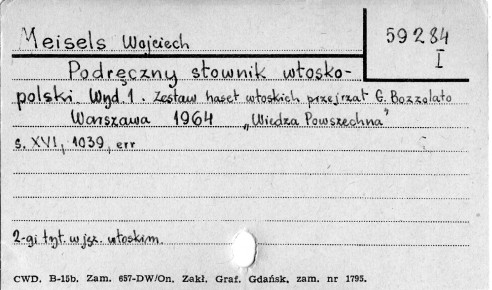 Meisels Wojciech
59284
I
Podręczny słownik włosko-
polski. Wyd. 1. Zestaw haseł włoskich przejrzał G. Bozzolato
Warszawa 1964 „Wiedza Powszechna"
s. XVI, 1039, err
2-gi tyt. w jęz. włoskim.
CWD. B-15b. Zam. 657-DW/On. Zakł. Graf. Gdańsk, zam. nr 1795.